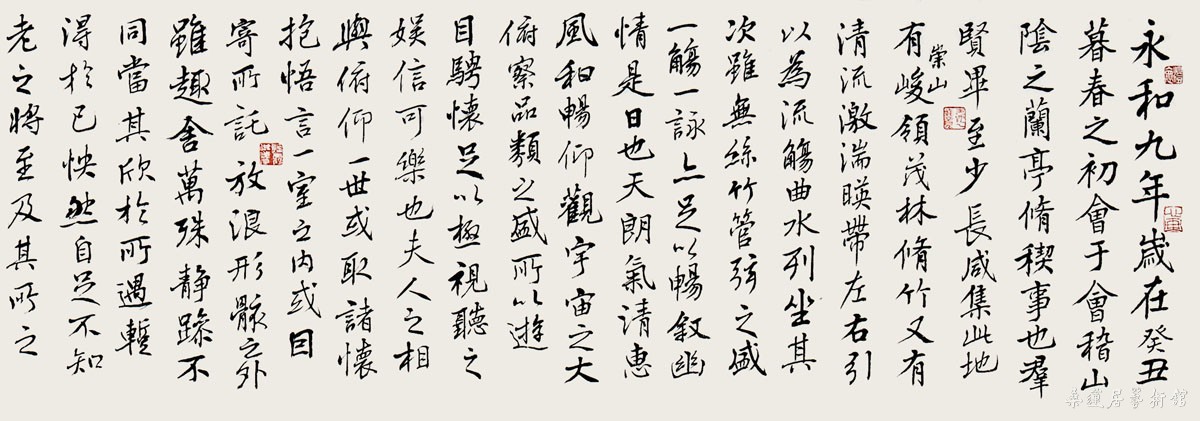 永和九年歲在癸丑
暮春之初會于會稽山
陰之蘭亭脩稧事也羣
賢畢至少長咸集此地
有崇山峻領茂林脩竹又有
清流激湍暎帶左右引
以為流觴曲水列坐其
次雖無絲竹管弦之盛
一觴一詠亦足以暢敘幽
情是日也天朗氣清惠
風和暢仰觀宇宙之大
俯察品類之盛所以遊
目騁懷足以極視聽之
娛信可樂也夫人之相
與俯仰一世或取諸懷
抱悟言一室之內或因
寄所託放浪形骸之外
雖趣舍萬殊靜躁不
同當其欣於所遇蹔
得於己怏然自足不知
老之將至及其所之
桑蓮居藝術館